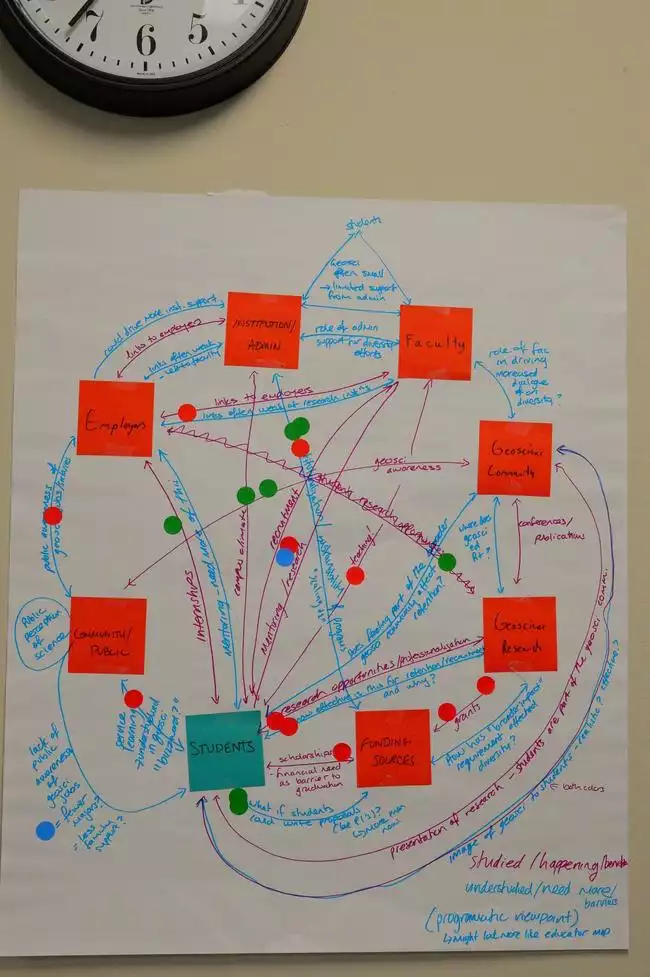 7
6
5
students
Geosci
often small
→ limited support
from admin
could drive more inst. support
links to employers
links often weak
INSTITUTION/
ADMIN
role of admin
support for diversity
efforts
Faculty
role of fac
in driving
increased
dialogue
on
diversity?
Employers
links to employers
links often weak at research instns
Geoscience
Community
geosci
awareness
public awareness of
student research opportunities
where does
geosci
ed
fit?
conferences/
publications
internships
Mentoring - need more of this
campus climate
recruitment
Mentoring/research
teaching!
"scaling up"
does feeling part of the
geosci community affect
retention?
Public
perception
of science
COMMUNITY/
PUBLIC
Geoscience
Research
service
learning
→ understudied
in geosci
research opportunities/professionalization
how effective is this for retention/recruitment
and why?
grants
How has "broader impacts"
requirement affected
diversity?
STUDENTS
scholarships
- financial need
as barrier to
graduation
FUNDING
SOURCES
lack of
public
awareness
of
geosci
jobs
= fewer
majors?
= less
family
support?
what if students
could write proposals
(be PIs)?
↳ more than
now
presentation of research - students are part of the geosci comm.
image of geosci to students - realistic? effective?
← both colors
studied/happening/
understudied/need more/
barriers
(programatic viewpoint)
↳ might look more like educator map